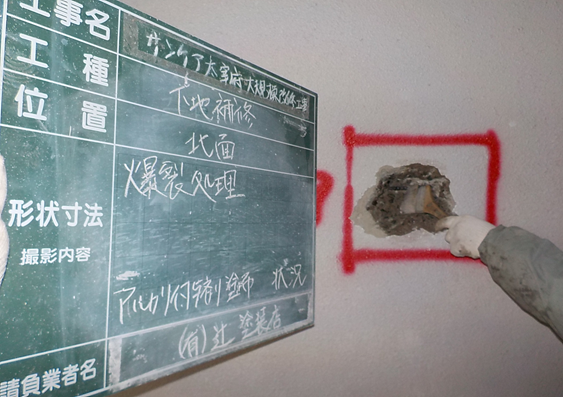 工事名 サンケア太宰府大規模改修工事
工種 下地補修
位置 北面
形状寸法
撮影内容
爆裂処理
アルカリ付与剤塗布 状況
請負業者名 (有)辻塗装店